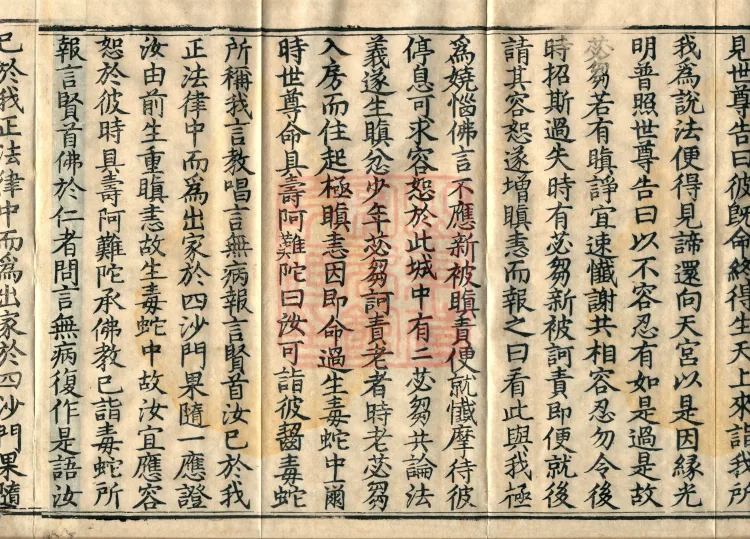 見世尊告曰彼既命終得生天上來詣我所
我為說法便得見諦還向天宮以是因緣光
明普照世尊告曰以不容忍有如是過是故
苾芻若有瞋諍宜速懺謝共相容忍勿令後
時招斯過失時有苾芻新被訶責即便就後
請其容恕遂增瞋恚而報之曰看此與我極
為嬈惱佛言不應新被瞋責便就懺摩待彼
停息可求容恕於此城中有二苾芻共論法
義遂生瞋忿少年苾芻訶責老者時老苾芻
入房而住起極瞋恚因即命過生毒蛇中爾
時世尊命具壽阿難陀曰汝可詣彼齧毒蛇
所稱我言教唱言無病報言賢首汝已於我
正法律中而為出家於四沙門果隨一應證
汝由前生重瞋恚故生毒蛇中故汝宜應容
恕於彼時具壽阿難陀承佛教已詣毒蛇所
報言賢首佛於仁者問言無病復作是語汝
已於我正法律中而為出家於四沙門果隨